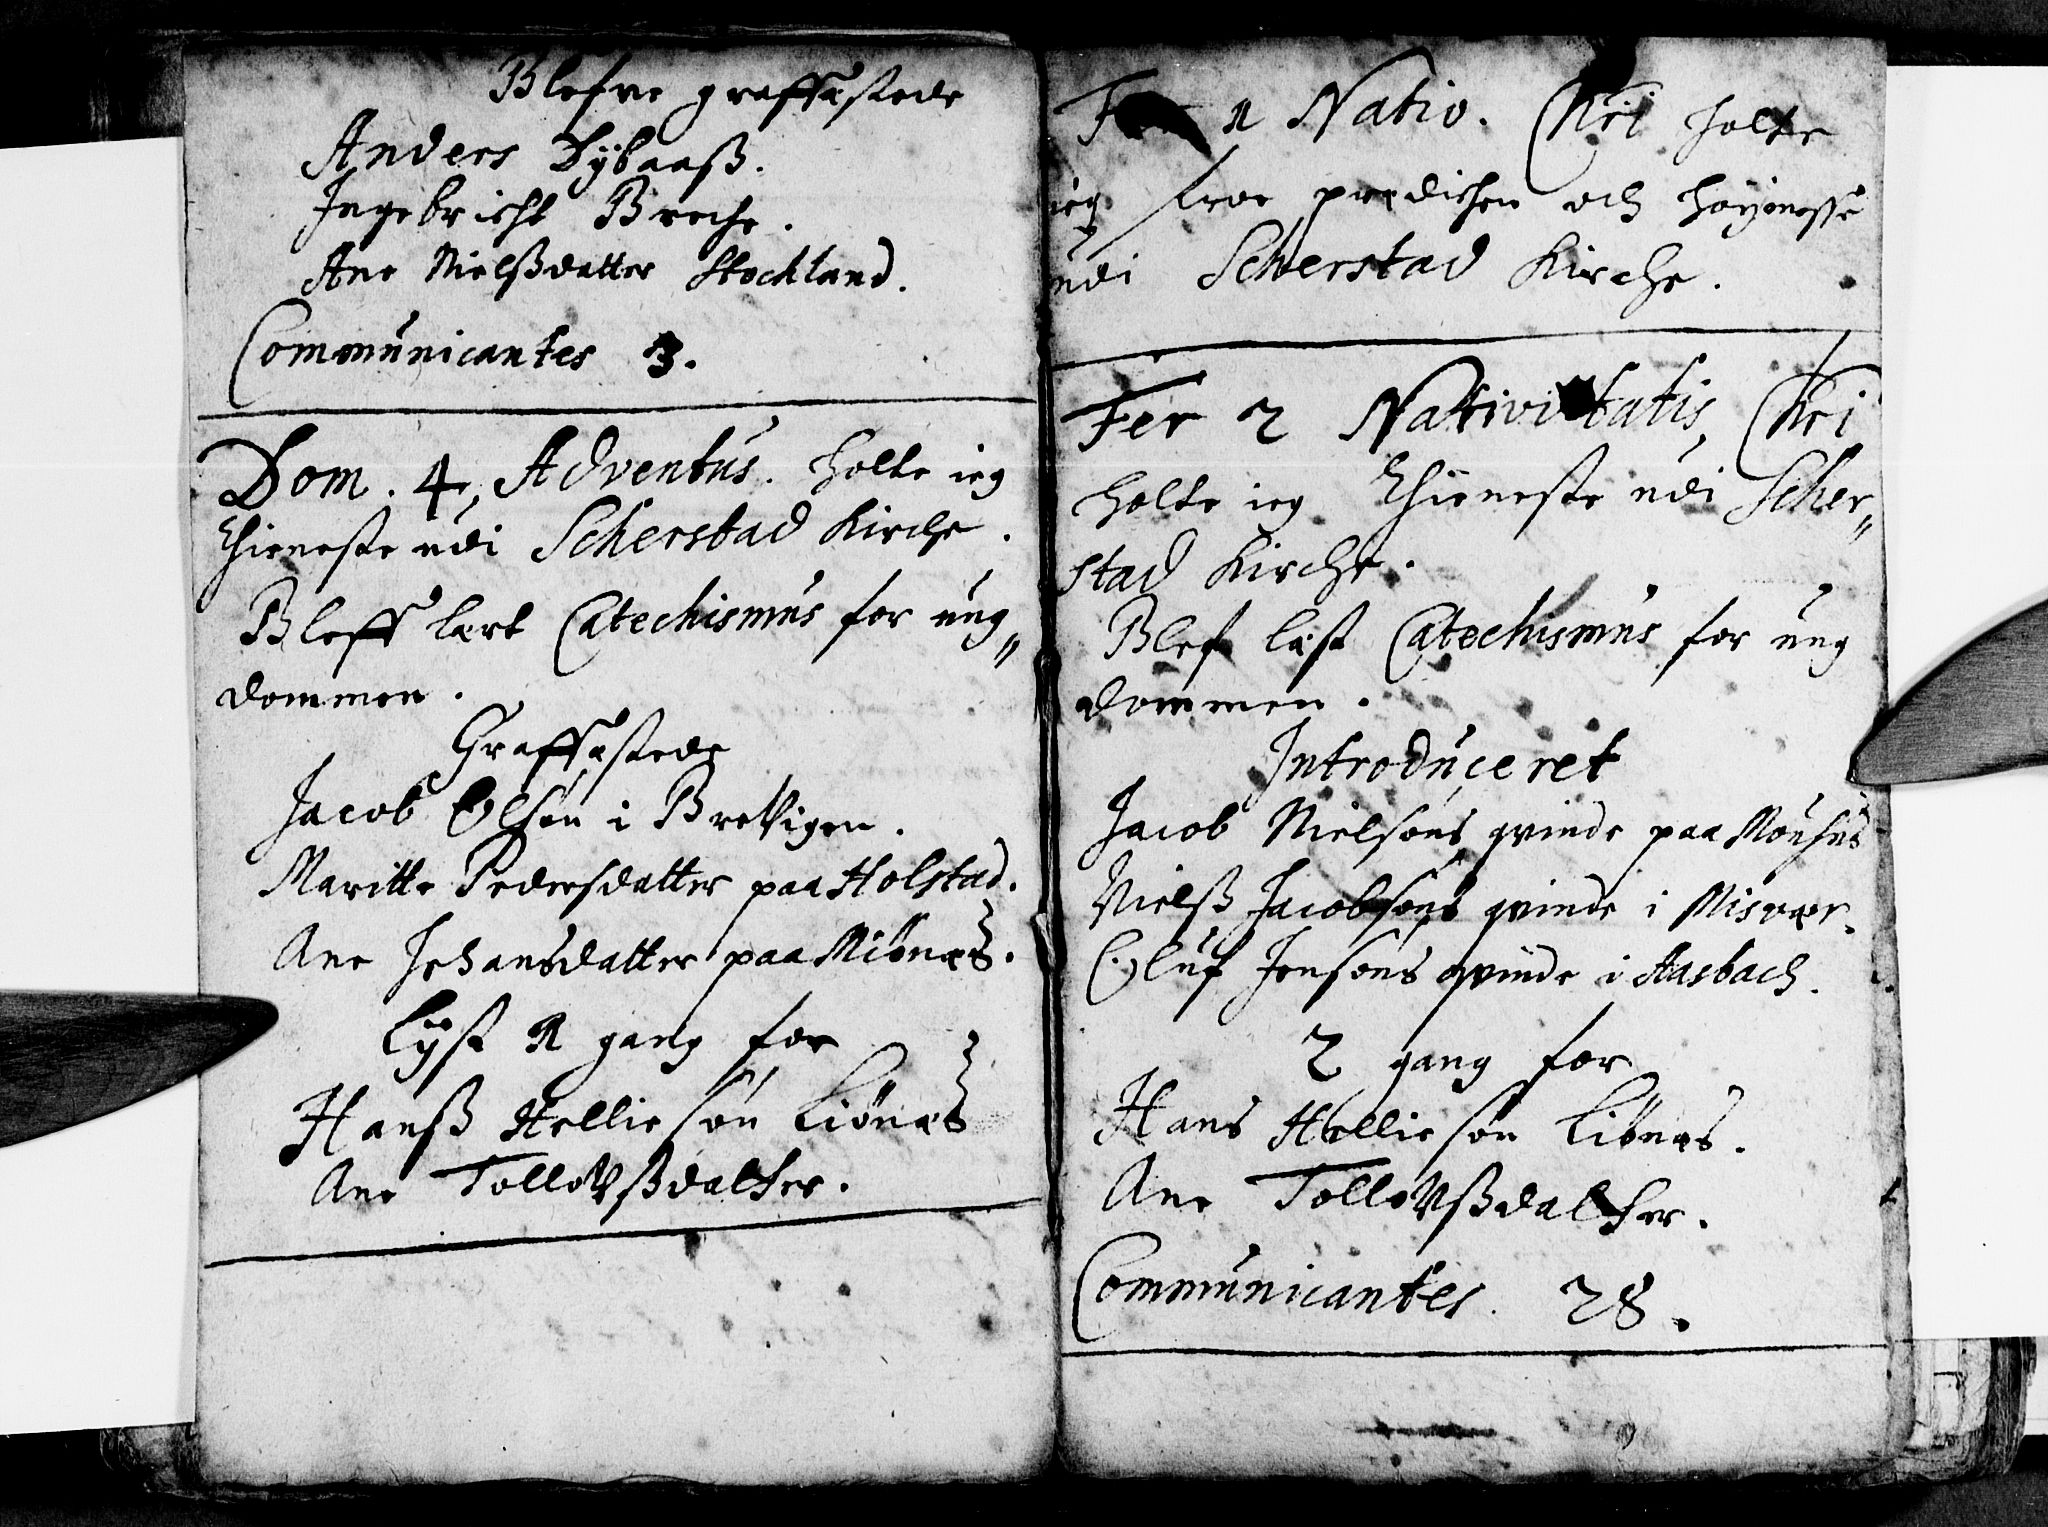 Blefve graffæstede
Anders Dÿbaasß.
Ingebricht Breche.
Ane Nielßdatter Stochland.
Communicantes 3.
Dom. 4, Adventus. holte ieg
thieneste udi Scherstad Kirche.
Bleff lært Catechismus for ung„
dommen.
Graffæstede
Jacob Olsøn i Brevigen.
Maritte Pedersdatter paa Holstad.
Ane Johansdatter paa Miönæs.
Lÿst 1 gang for
Hanß Hellie søn Liönæs
Ane Tollovßdatter.
Fer 1 Nativ. Chri holte
ieg froe prædichen och høÿmesse
udi Scherstad Kirche.
Fer 2 Nativitatis, Chri
holte ieg thieneste udi Scher„
stad Kirche.
Blef læst Catechismus for ung
dommen.
Introduceret
Jacob Nielsøns qvinde paa Mouhus
Nielß Jacobsøns qvinde i Misvær.
Oluf Jensøns qvinde i Aasbach.
2 gang for
Hans Hellie søn Liönæs.
Ane Tollovßdatter.
Communicantes. 28.